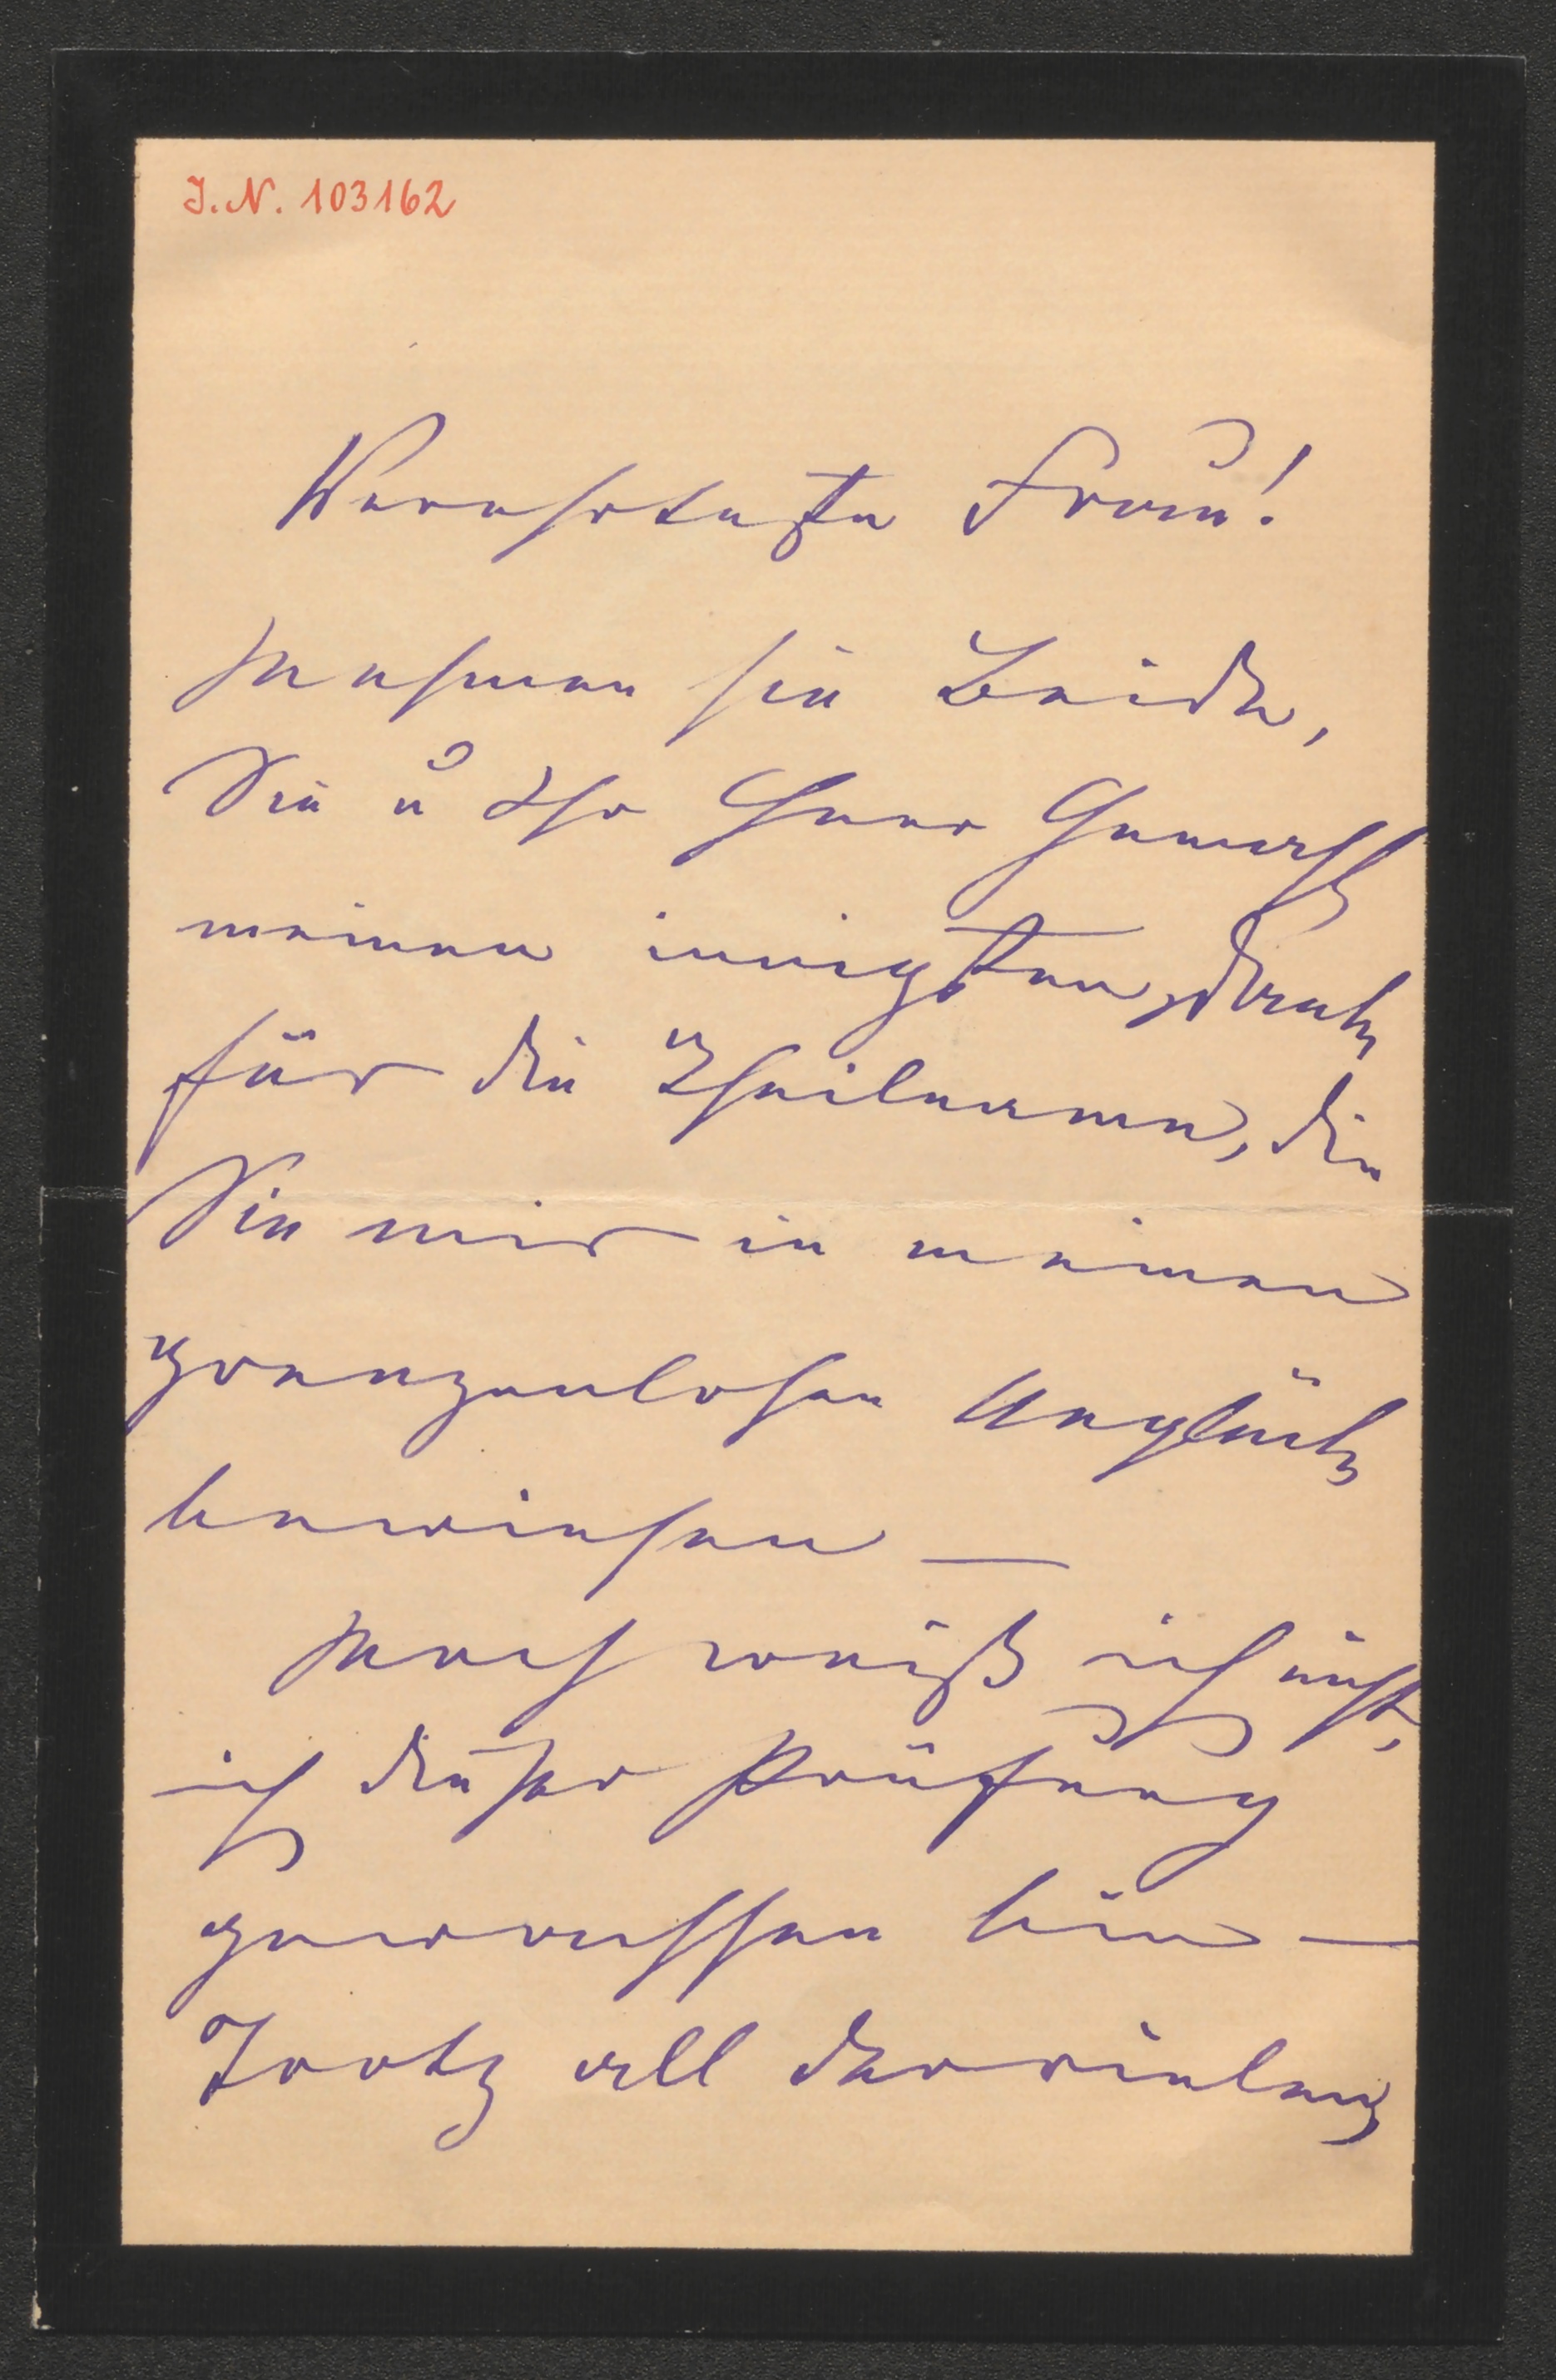 I. N. 103162
Verehrteste Frau!
Nehmen sie Beide,
Sie u Ihr Herr Gemahl
meinen innigsten Dank
für die Theilname, die
Sie mir in meinen
grenzenlosen Unglück
bewiesen —
Noch weiß ich nicht,
ich dieser Prüfung
gewachsen bin —
Trotz all der vielen